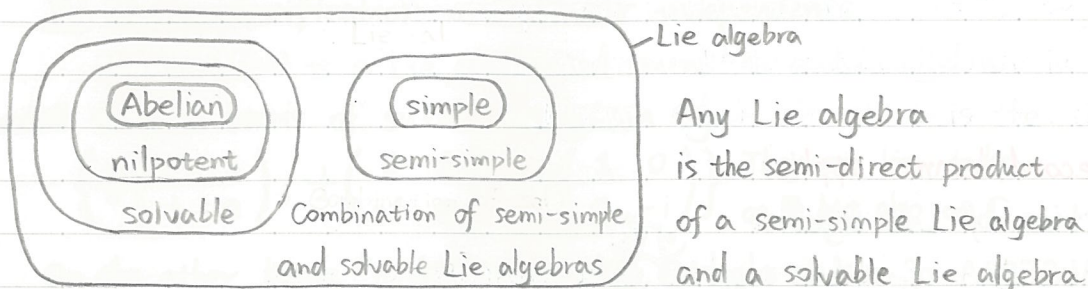 Lie algebra
Abelian
nilpotent
solvable
simple
semi-simple
Combination of semi-simple
and solvable Lie algebras
Any Lie algebra
is the semi-direct product
of a semi-simple Lie algebra
and a solvable Lie algebra